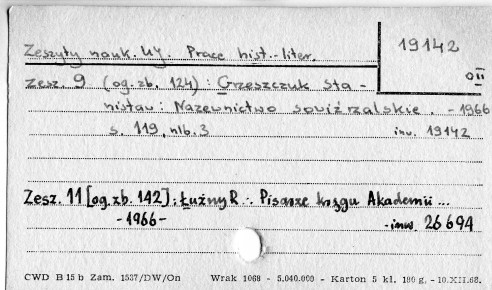 Zeszyty nauk. UJ. Prace hist.-liter.
19142
zesz. 9 (og. zb. 124) : Grzeszczuk Sta-
nisław : Nazewnictwo sowizrzalskie. - 1966
s. 119, nlb. 3 inw. 19142
Zesz. 11 [og. zb. 142] : Łużny R. : Pisarze kręgu Akademii ...
-1966- -inw. 26694
CWD B 15 b Zam. 1537/DW/On Wrak 1068 - 5.040.000 - Karton 5 kl. 180 g. - 10.XII.68.